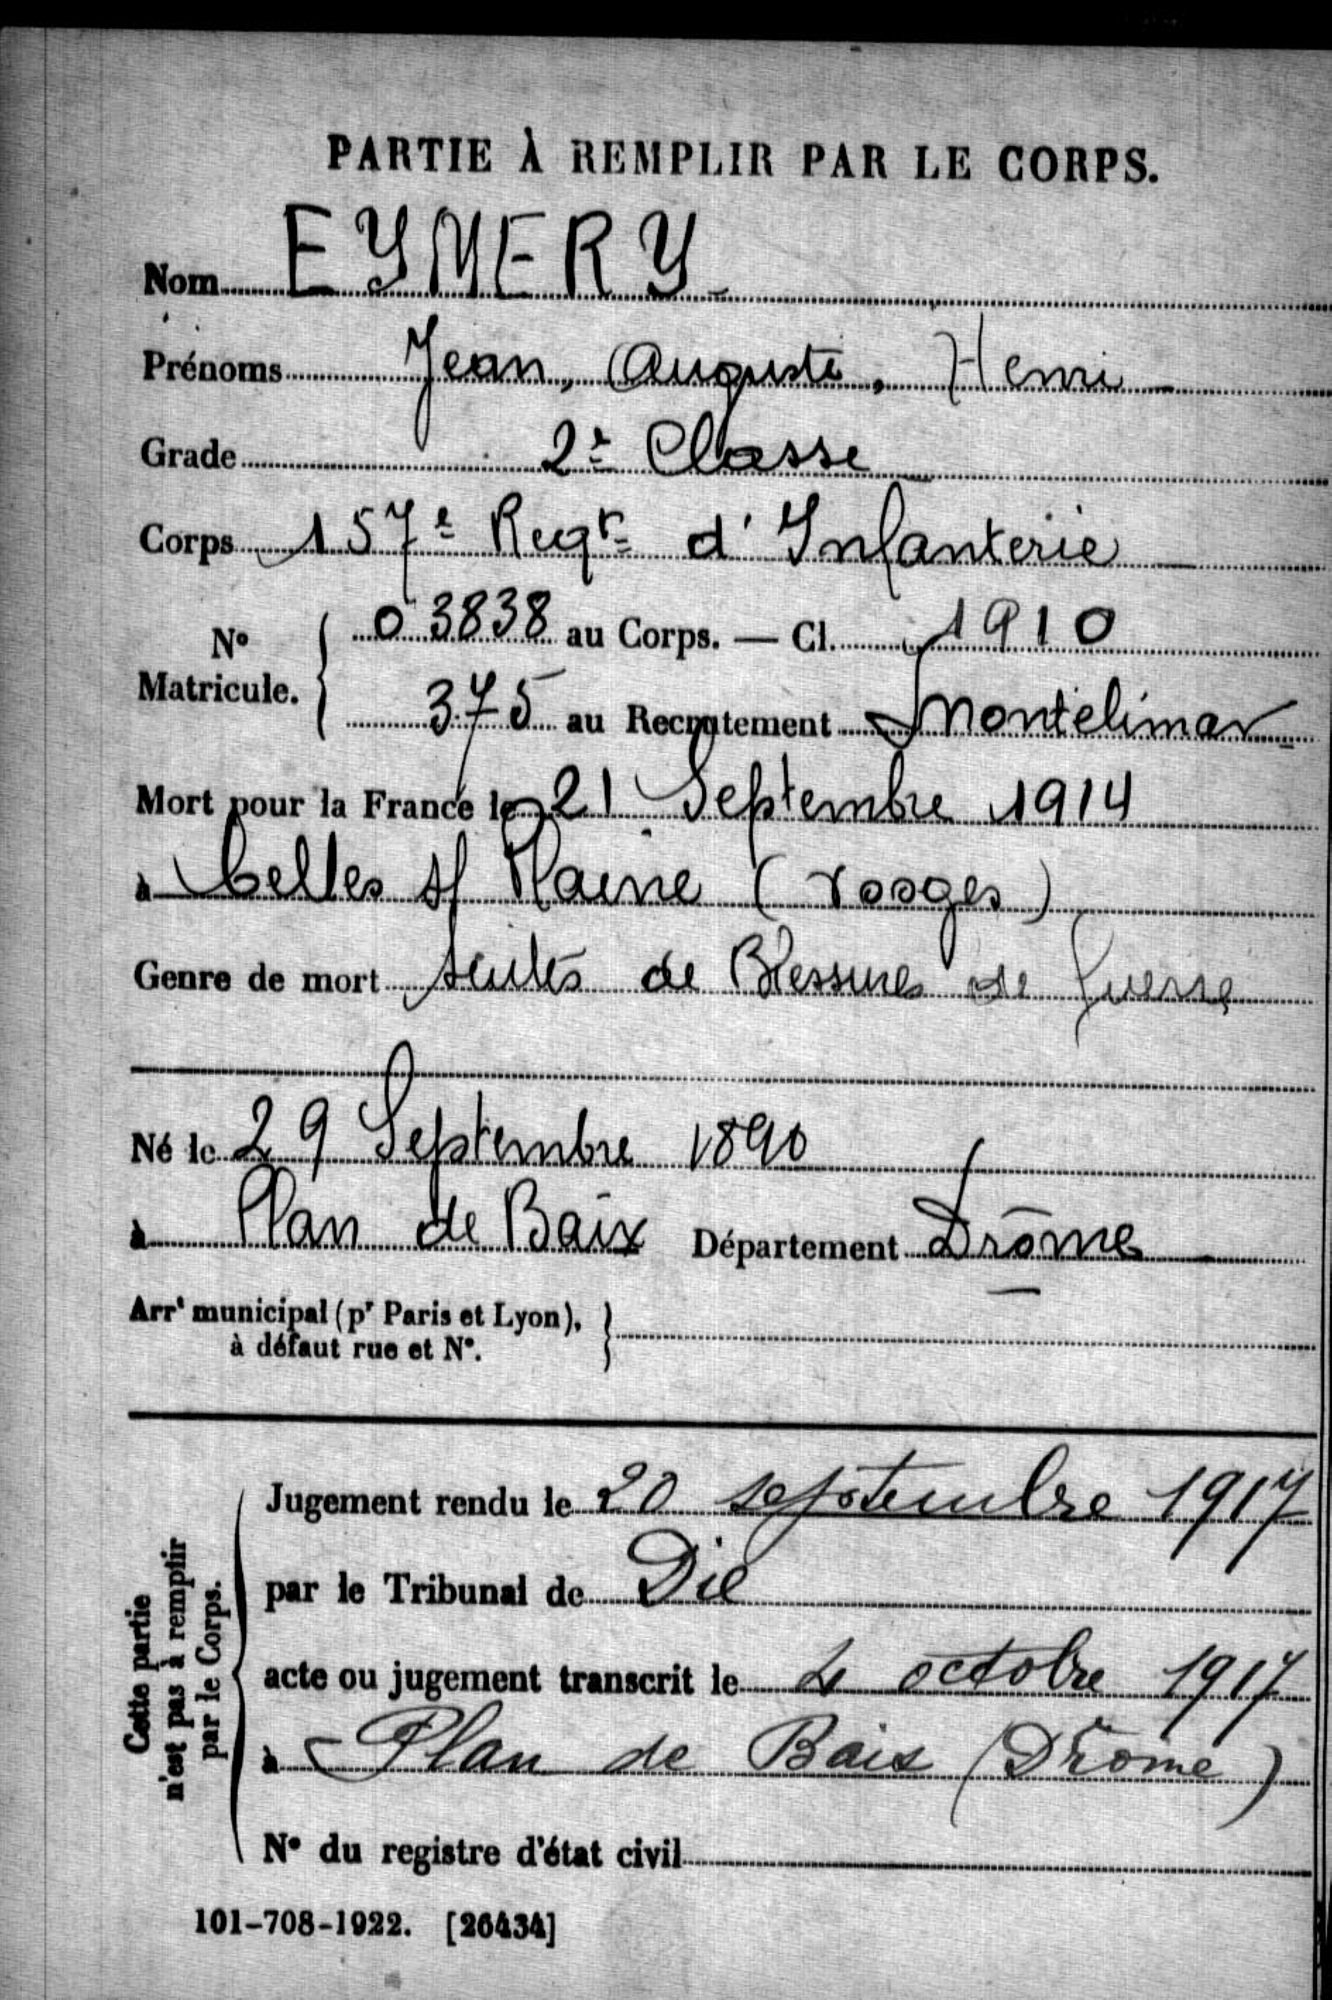 PARTIE À REMPLIR PAR LE CORPS.
Nom EYMERY
Prénoms Jean, Auguste, Henri
Grade 2e Classe
Corps 157e Regt d'Infanterie
No Matricule. { 03838 au Corps. — Cl. 1910
375 au Recrutement Montélimar
Mort pour la France le 21 Septembre 1914
à Celles s/ Plaine (Vosges)
Genre de mort suites de Blessures de guerre
Né le 29 Septembre 1890
à Plan de Baix Département Drôme
Arrt municipal (pr Paris et Lyon), à défaut rue et No. }
Cette partie n'est pas à remplir par le Corps.
Jugement rendu le 20 septembre 1917
par le Tribunal de Die
acte ou jugement transcrit le 4 octobre 1917
à Plan de Baix (Drôme)
No du registre d'état civil
101-708-1922. [26434]